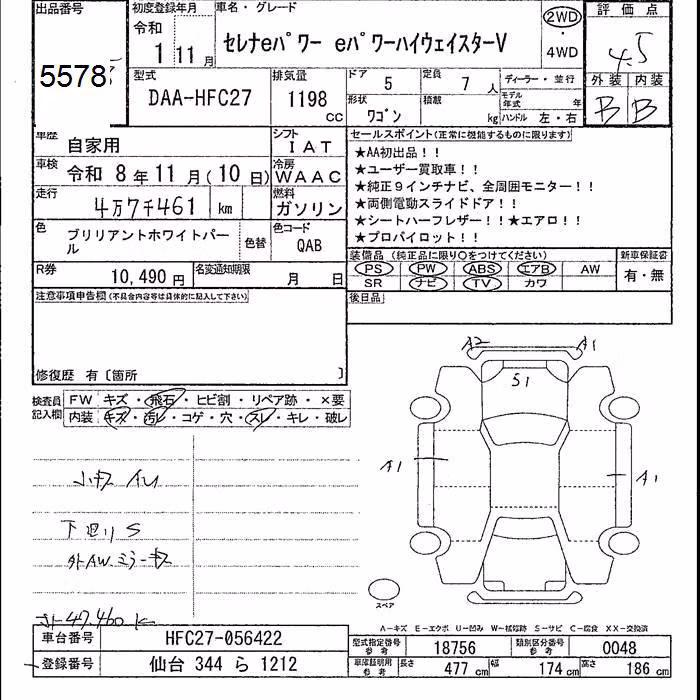 出品番号
5578
初度登録年月
令和
1 11 月
車名・グレード
セレナeパワー eパワーハイウェイスターV
2WD
・
4WD
評価点
4.5
外装 内装
B B
型式
DAA-HFC27
排気量
1198 cc
ドア 5
定員 7 人
形状 ワゴン
積載 kg
ディーラー・並行
モデル年式 年
ハンドル 左・右
車歴 自家用
シフト IAT
車検 令和 8 年 11 月 ( 10 日)
冷房 WAAC
走行 4万7千461 km
燃料 ガソリン
色 ブリリアントホワイトパール
色替
色コード QAB
R券 10,490 円
名変通知期限 月 日
セールスポイント(正常に機能するものに限ります)
★AA初出品！！
★ユーザー買取車！！
★純正9インチナビ、全周囲モニター！！
★両側電動スライドドア！！
★シートハーフレザー！！★エアロ！！
★プロパイロット！！
装備品 (純正品に限り○をつけてください)
PS PW ABS エアB AW
SR ナビ TV カワ
新車保証書
有・無
後日品
注意事項申告欄(不具合内容等は具体的に記入して下さい)
修復歴 有〔箇所 〕
検査員記入欄
FW キズ・飛石・ヒビ割・リペア跡・×要
内装 キズ・汚レ・コゲ・穴・スレ・キレ・破レ
小キズ AU
下廻りS
外AW ミラーキズ
メーター 47,460 K
A2 A1
S1
A1 A1
スペア
A－キズ E－エクボ U－凹み W－補修跡 S－サビ C－腐食 XX－交換済
車台番号 HFC27-056422
登録番号 仙台 344 ら 1212
型式指定番号 参考 18756
類別区分番号 参考 0048
車庫証明用 参考 長さ 477 cm 幅 174 cm 高さ 186 cm